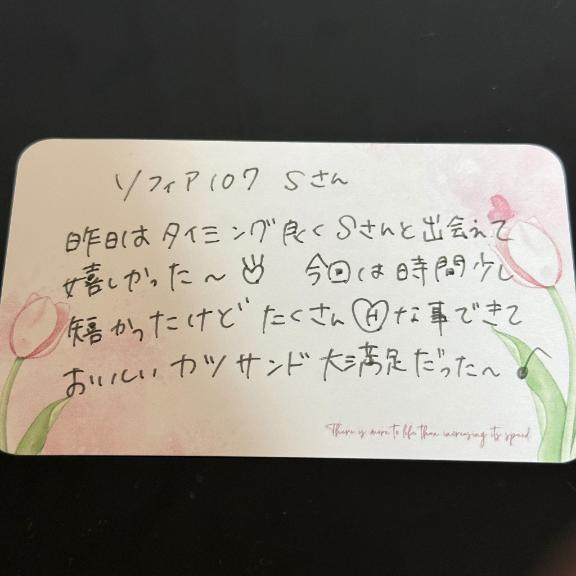 ソフィア107 Sさん
昨日はタイミング良くSさんと出会えて
嬉しかった〜 今回は時間少し
短かったけど たくさんHな事できて
おいしいカツサンド大満足だった〜♪
There is more to life than increasing its speed.